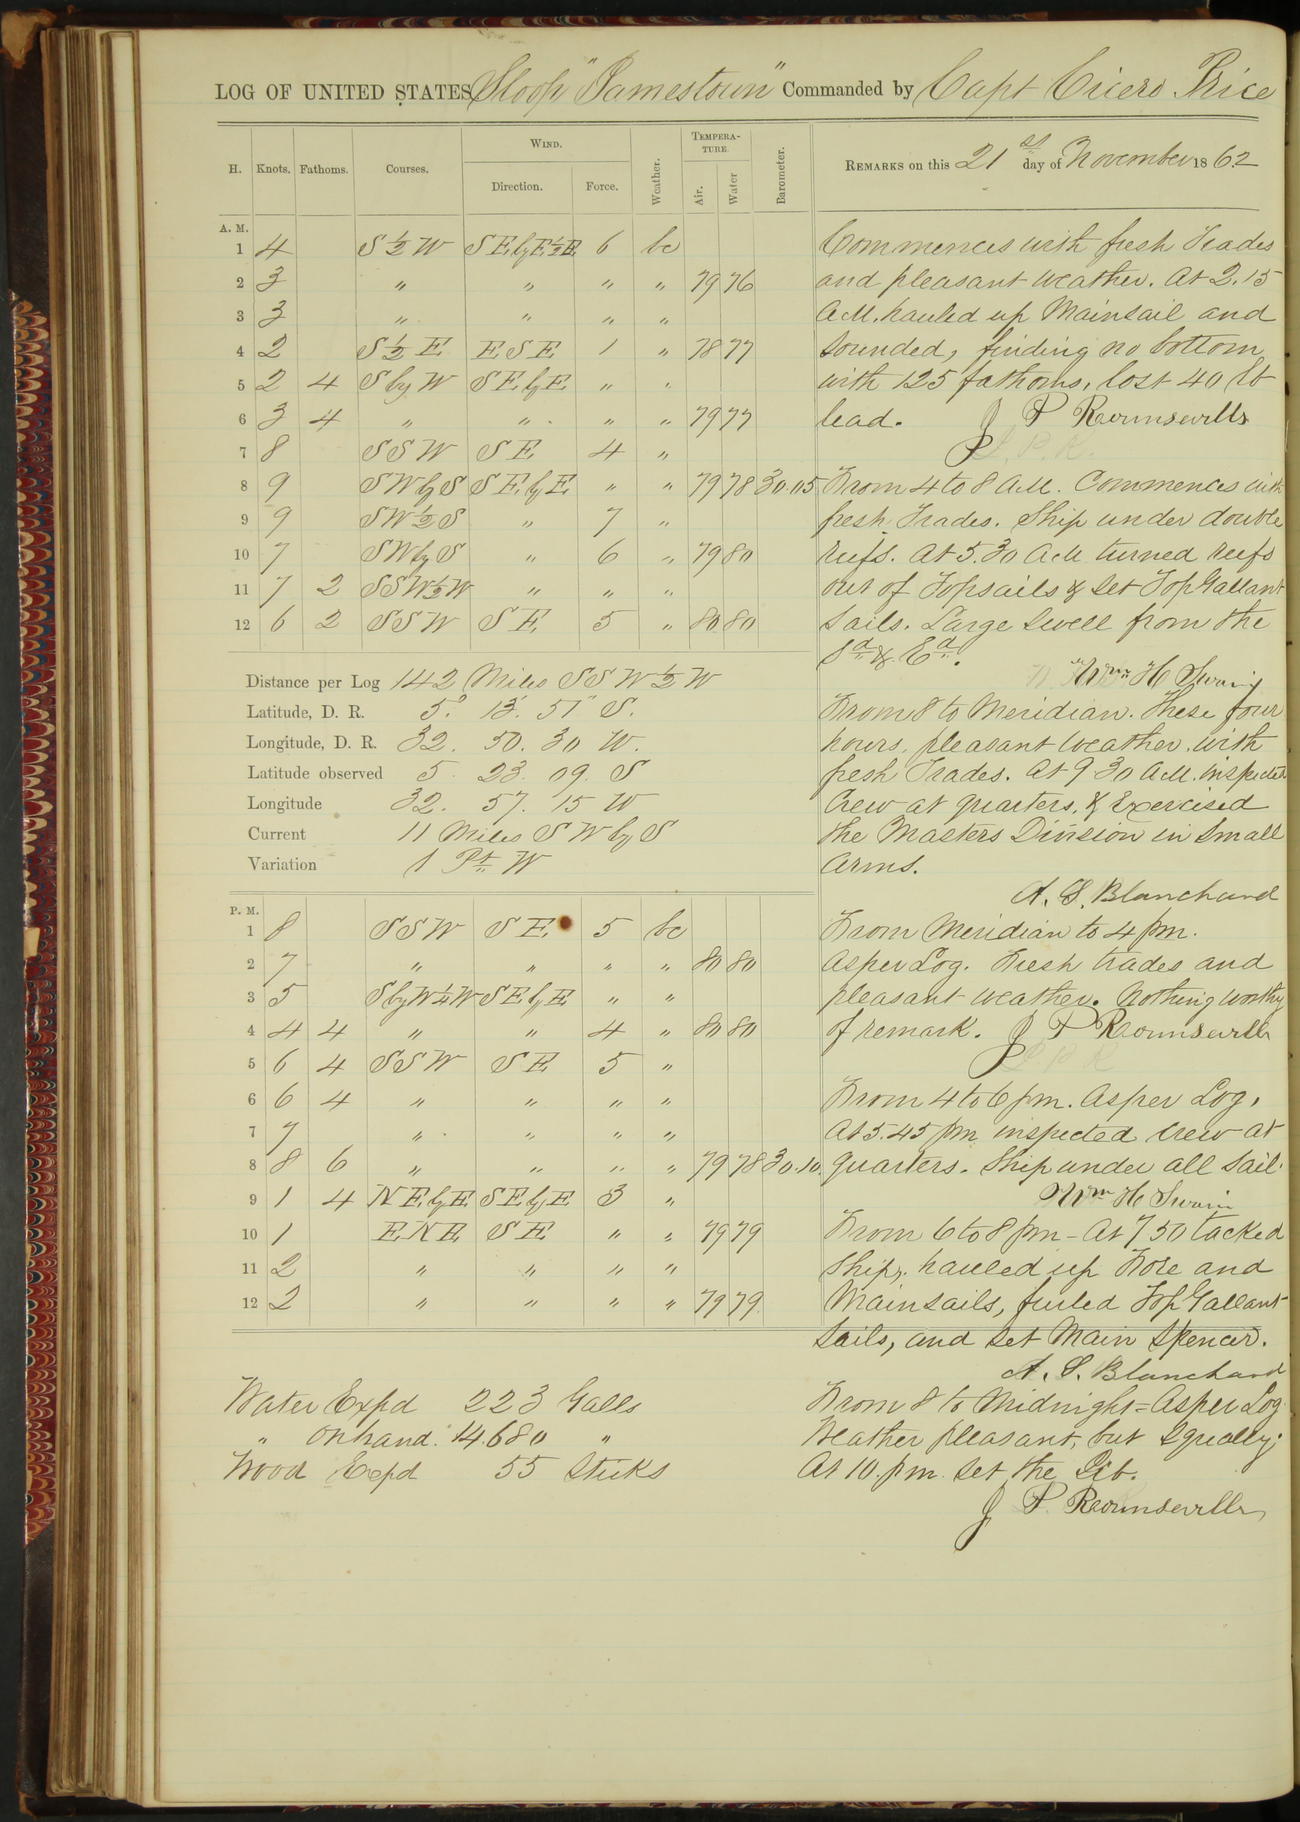 LOG OF UNITED STATES Sloop "Jamestown" Commanded by Capt Cicero Price
H. Knots. Fathoms. Courses. WIND. Direction. Force. Weather. TEMPERATURE. Air. Water Barometer.
REMARKS on this 21st day of November 1862
A. M.
1 4 S ½ W SEbyE½E 6 bc
2 3 " " " " 79 76
3 3 " " " "
4 2 S ½ E ESE 1 " 78 77
5 2 4 S by W SEbyE " "
6 3 4 " " " " 79 77
7 8 SSW SE 4 "
8 9 SWbyS SEbyE " " 79 78 30.05
9 9 SW½S " 7 "
10 7 SWbyS " 6 " 79 80
11 7 2 SSW½W " " "
12 6 2 SSW SE 5 " 80 80
Distance per Log 142 Miles SSW½W
Latitude, D. R. 5° 13' 51" S.
Longitude, D. R. 32. 50. 30 W.
Latitude observed 5. 23. 09. S
Longitude 32. 57. 15 W
Current 11 Miles SWbyS
Variation 1 Pt. W
P. M.
1 8 SSW SE 5 bc
2 7 " " " " 80 80
3 5 SbyW¼W SEbyE " "
4 4 4 " " 4 " 80 80
5 6 4 SSW SE 5 "
6 6 4 " " " "
7 7 " " " "
8 8 6 " " " " 79 78 30.10
9 1 4 NEbyE SEbyE 3 "
10 1 ENE SE " " 79 79
11 2 " " " "
12 2 " " " " 79 79
Water Expd 223 Galls
" on hand. 14680 "
Wood Expd 55 Sticks
Commences with fresh Trades
and pleasant weather. At 2.15
A.M. hauled up Mainsail and
sounded, finding no bottom
with 125 fathoms, lost 40 lb
lead. J P Rounsevills
J. P. R.
From 4 to 8 A.M. Commences with
fresh Trades. Ship under double
reefs. At 5.30 A.M. turned reefs
out of Topsails & set Top Gallant
sails. Large swell from the
Sd & Ed.
Wm H Swain
From 8 to Meridian. These four
hours, pleasant weather, with
fresh Trades. At 9 30 A.M. inspected
Crew at quarters, & Exercised
the Masters Division in Small
Arms.
A. S. Blanchard
From Meridian to 4 pm.
As per Log. Fresh trades and
pleasant weather. Nothing worthy
of remark. J P Rounsevills
From 4 to 6 pm. As per Log,
At 5.45 pm inspected crew at
quarters. Ship under all sail.
Wm H Swain
From 6 to 8 pm - At 7 50 tacked
Ship, hauled up Fore and
Mainsails, furled Top Gallant
Sails, and set Main Spencer.
A. S. Blanchard
From 8 to Midnight = As per Log
Weather pleasant, but Squally;
At 10. p.m. set the Jib.
J P Rounsevills